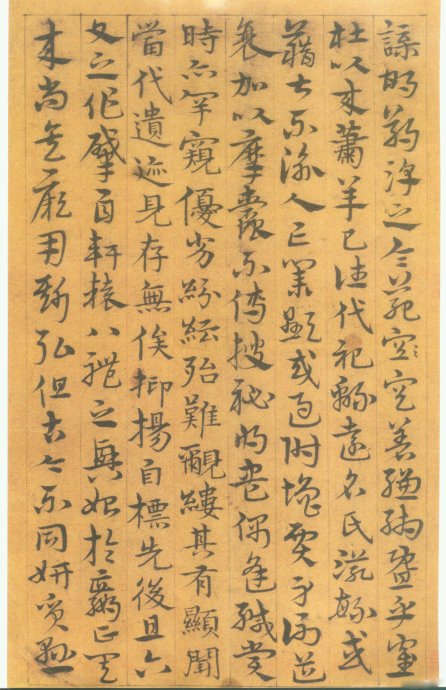 諜邯鄲淳之令範空著縑緗暨乎崔
杜以来蕭羊已往代祀綿遠名氏滋繁或
藉甚不渝人亡業顯或憑附增價身謝道
衰加以糜蠹不傳搜秘將盡偶逢緘賞
時亦罕窺優劣紛紜殆難覼縷其有顯聞
當代遺迹見存無俟抑揚自標先後且六
文之作肇自軒轅八體之興始於嬴正其
来尚矣厥用斯弘但古今不同妍質懸